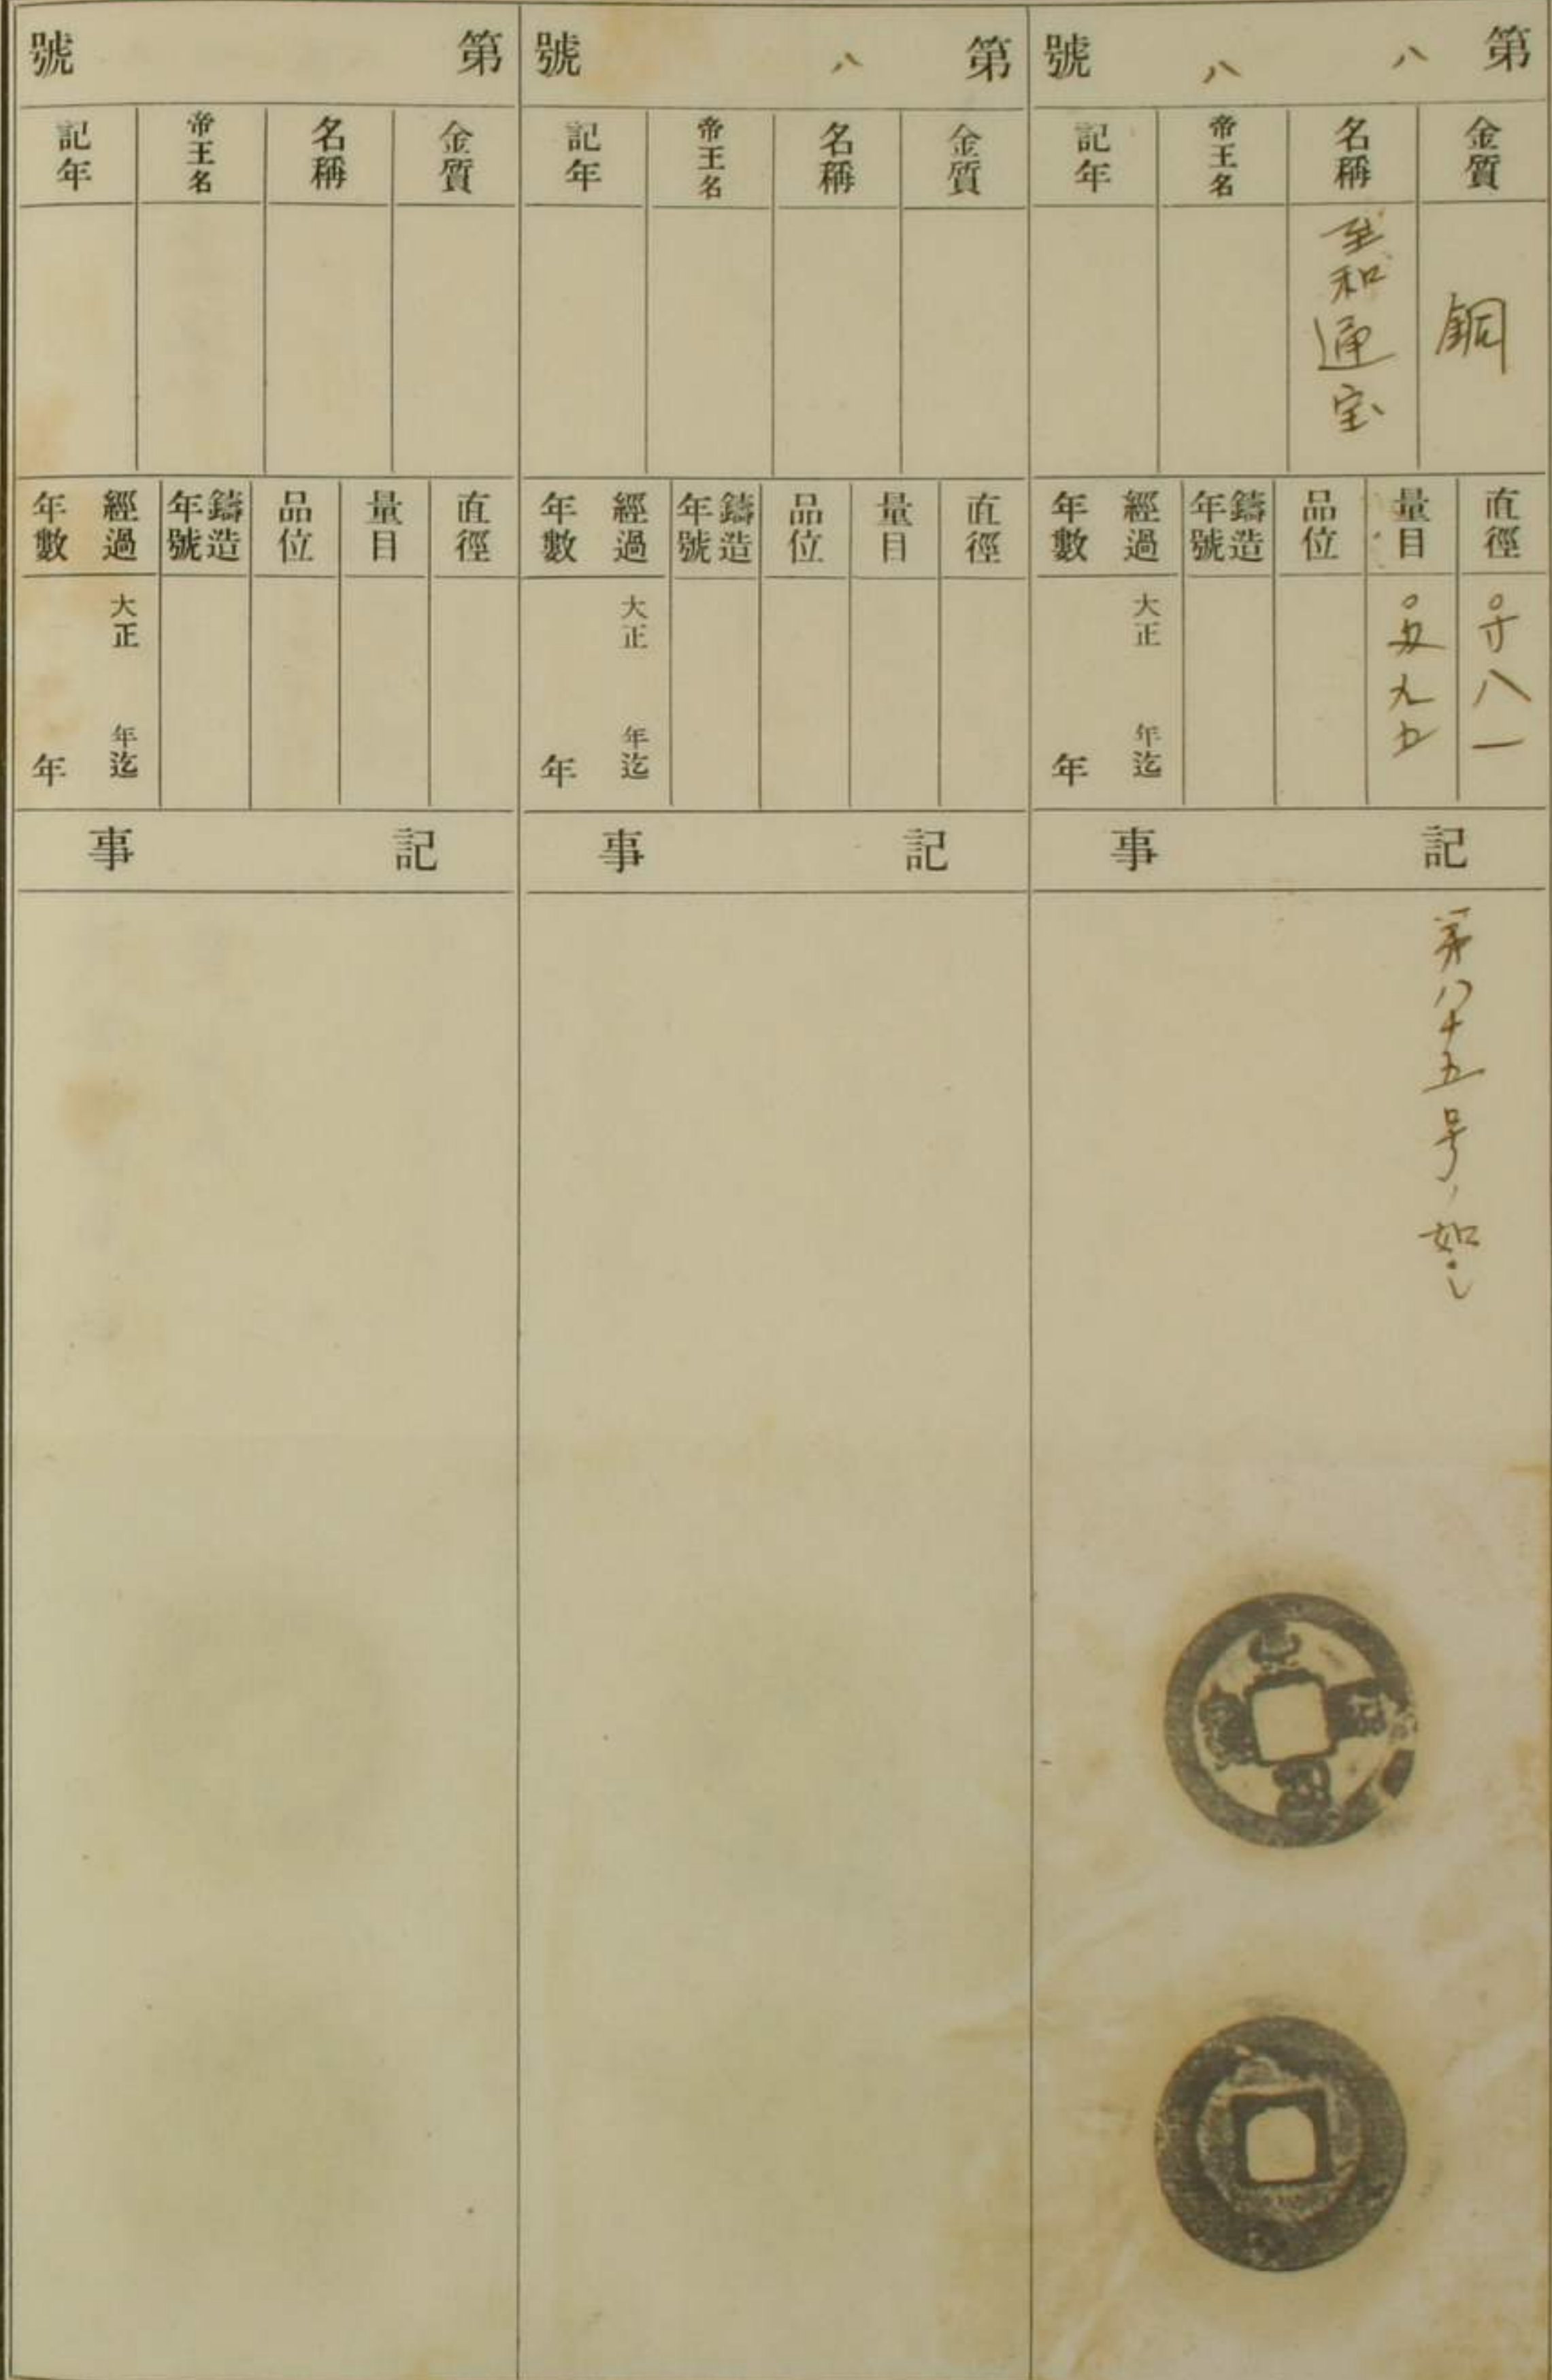 第八八號
金質
銅
名稱
至和通宝
帝王名
記年
直徑
〇寸八一
量目
〇匁九五
品位
鑄造年號
經過年數
大正 年迄
年
記事
第八十五号ノ如シ
第八 號
金質
名稱
帝王名
記年
直徑
量目
品位
鑄造年號
經過年數
大正 年迄
年
記事
第 號
金質
名稱
帝王名
記年
直徑
量目
品位
鑄造年號
經過年數
大正 年迄
年
記事